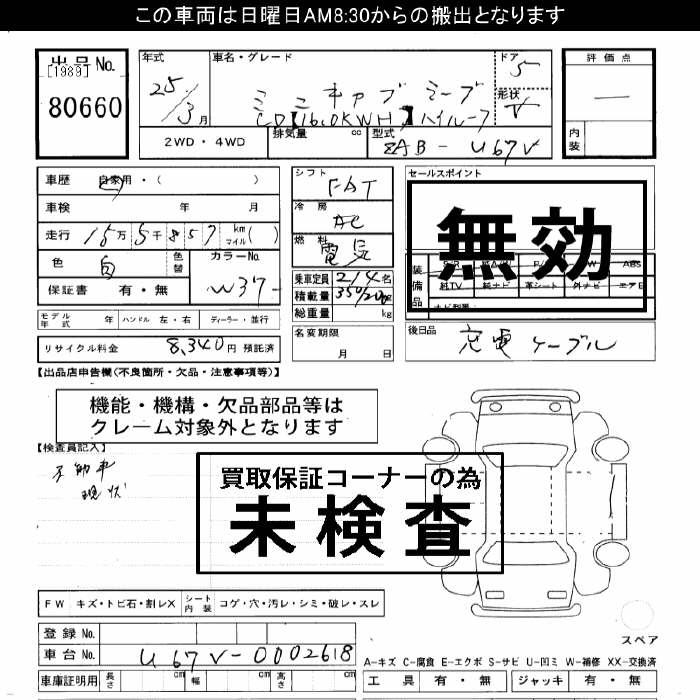 この車両は日曜日AM8:30からの搬出となります
出品No.
[1989]
80660
年式
25/3月
車名・グレード
ミニキャブ ミーブ
CD【16.0KWH】ハイルーフ
ドア
5
形状
V
評価点
―
内装
2WD・4WD
排気量 cc
型式
ZAB-U67V
車歴 自家用・( )
車検 年 月
走行 15万5千857 km(マイル)
色 白 色替
カラーNo. W37
保証書 有・無
モデル年式 年 ハンドル 左・右 ディーラー・並行
リサイクル料金 8,340円 預託済
シフト
FAT
冷房
AC
燃料
電気
乗車定員 2/4名
積載量 350/200kg
総重量 kg
名変期限
月 日
セールスポイント
無効
装備品
ABS
純TV 純ナビ 革シート 外ナビ エアB
ナビ型番
後日品
充電ケーブル
【出品店申告欄(不良箇所・欠品・注意事項等)】
機能・機構・欠品部品等は
クレーム対象外となります
【検査員記入】
不動車
現状
買取保証コーナーの為
未検査
FW キズ・トビ石・割レX
シート内装 コゲ・穴・汚レ・シミ・破レ・スレ
登録No.
車台No. U67V-0002618
車庫証明用 長さ cm 幅 cm 高さ cm
スペア
A-キズ C-腐食 E-エクボ S-サビ U-凹ミ W-補修 XX-交換済
工具 有・無 ジャッキ 有・無